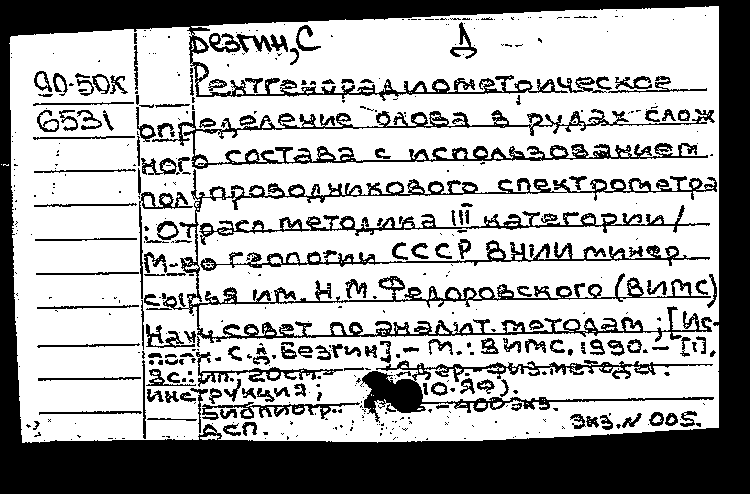 Безгин, С Д
90-50К Рентгенорадиометрическое
6531 определение олова в рудах слож
ного состава с использованием
полупроводникового спектрометра
: Отрасл. методика III категории /
М-во геологии СССР, ВНИИ минер.
сырья им. Н.М. Федоровского (ВИМС)
Науч. совет по аналит. методам ; [Ис-
полн. С.Д. Безгин]. - М.: ВИМС, 1990. - [1],
3с.: ил.; 20см. - Ядер.-физ. методы :
инструкция ; 10-ЯФ).
Библиогр.: - 400 экз.
ДСП. Экз. N 005.